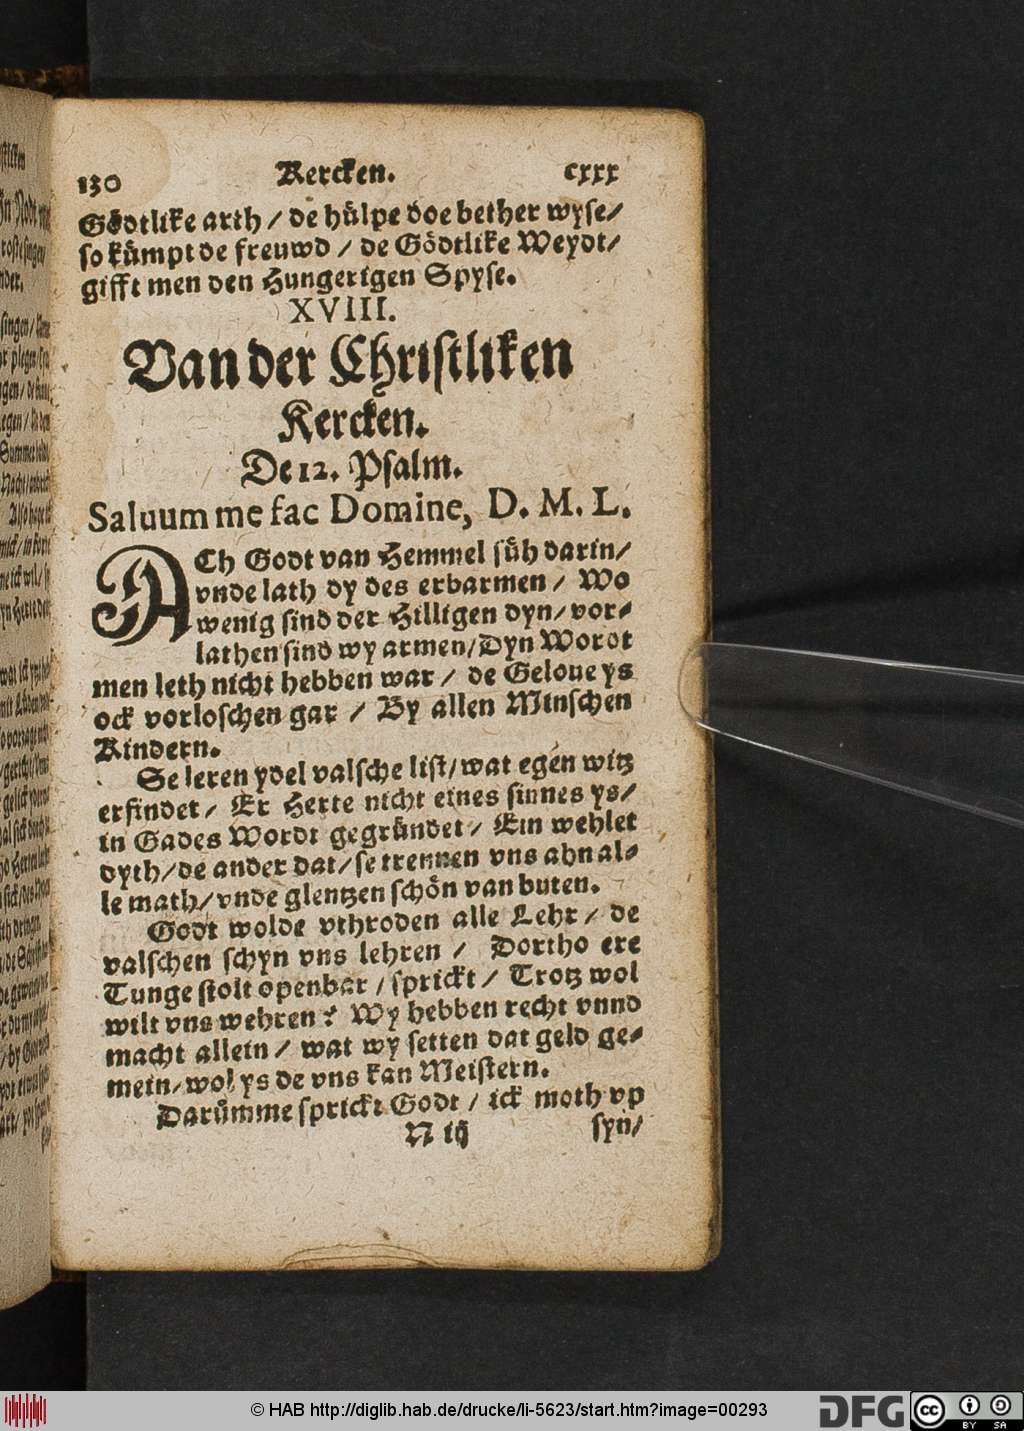 130 Kercken. cxxx
Gödtlike arth / de hülpe doe bether wyse/
so kümpt de freuwd / de Gödtlike Weydt/
gifft men den Hungerigen Spyse.
XVIII.
Van der Christliken
Kercken.
De 12. Psalm.
Saluum me fac Domine, D. M. L.
ACh Godt van Hemmel süh darin/
vnde lath dy des erbarmen / Wo
wenig sind der Hilligen dyn/ vor-
lathen sind wy armen/ Dyn Wordt
men leth nicht hebben war / de Geloue ys
ock vorloschen gar / By allen Minschen
Kindern.
Se leren ydel valsche list/ wat egen witz
erfindet / Er Herte nicht eines sinnes ys/
in Gades Wordt gegründet / Ein wehlet
dyth/ de ander dat/ se trennen vns ahn al-
le math/ vnde glentzen schön van buten.
Godt wolde vthroden alle Lehr / de
valschen schyn vns lehren / Dortho ere
Tunge stolt openbar / sprickt / Trotz wol
wilt vns wehren? Wy hebben recht vnnd
macht allein / wat wy setten dat geld ge-
mein/ wol ys de vns kan Meistern.
Darümme sprickt Godt / ick moth vp
N iij syn/
© HAB http://diglib.hab.de/drucke/li-5623/start.htm?image=00293
DFG
cc BY SA